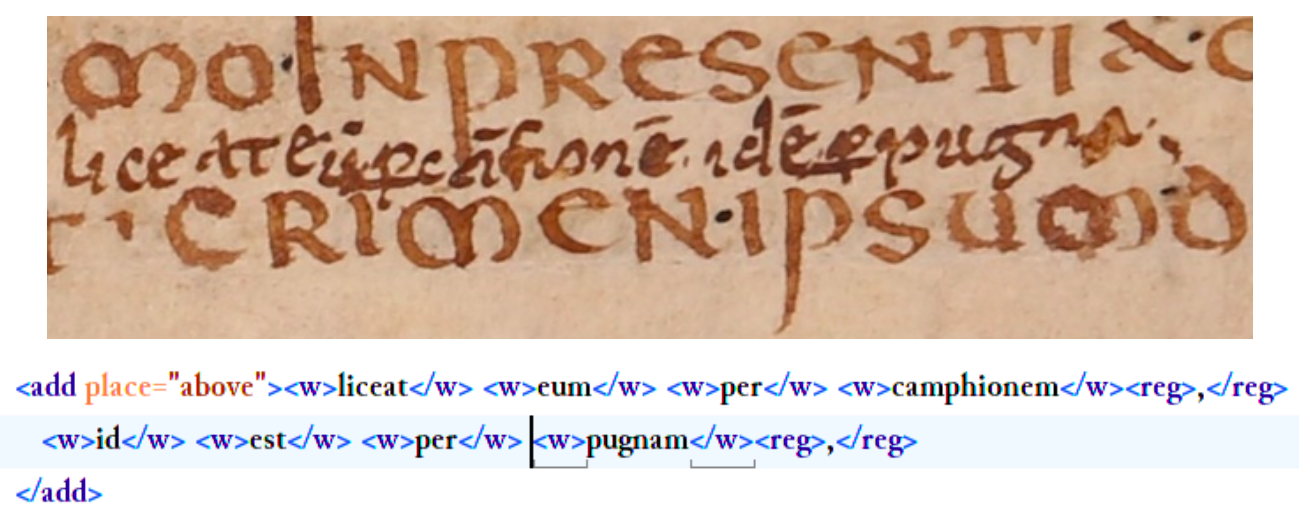 MO·INPRESENTIA·C
liceat eū ꝑ cāfionē. idē ꝑ pugnā·,
T·CRIMEN·IPSUMD
<add place="above"><w>liceat</w> <w>eum</w> <w>per</w> <w>camphionem</w><reg>,</reg>
<w>id</w> <w>est</w> <w>per</w> <w>pugnam</w><reg>,</reg>
</add>